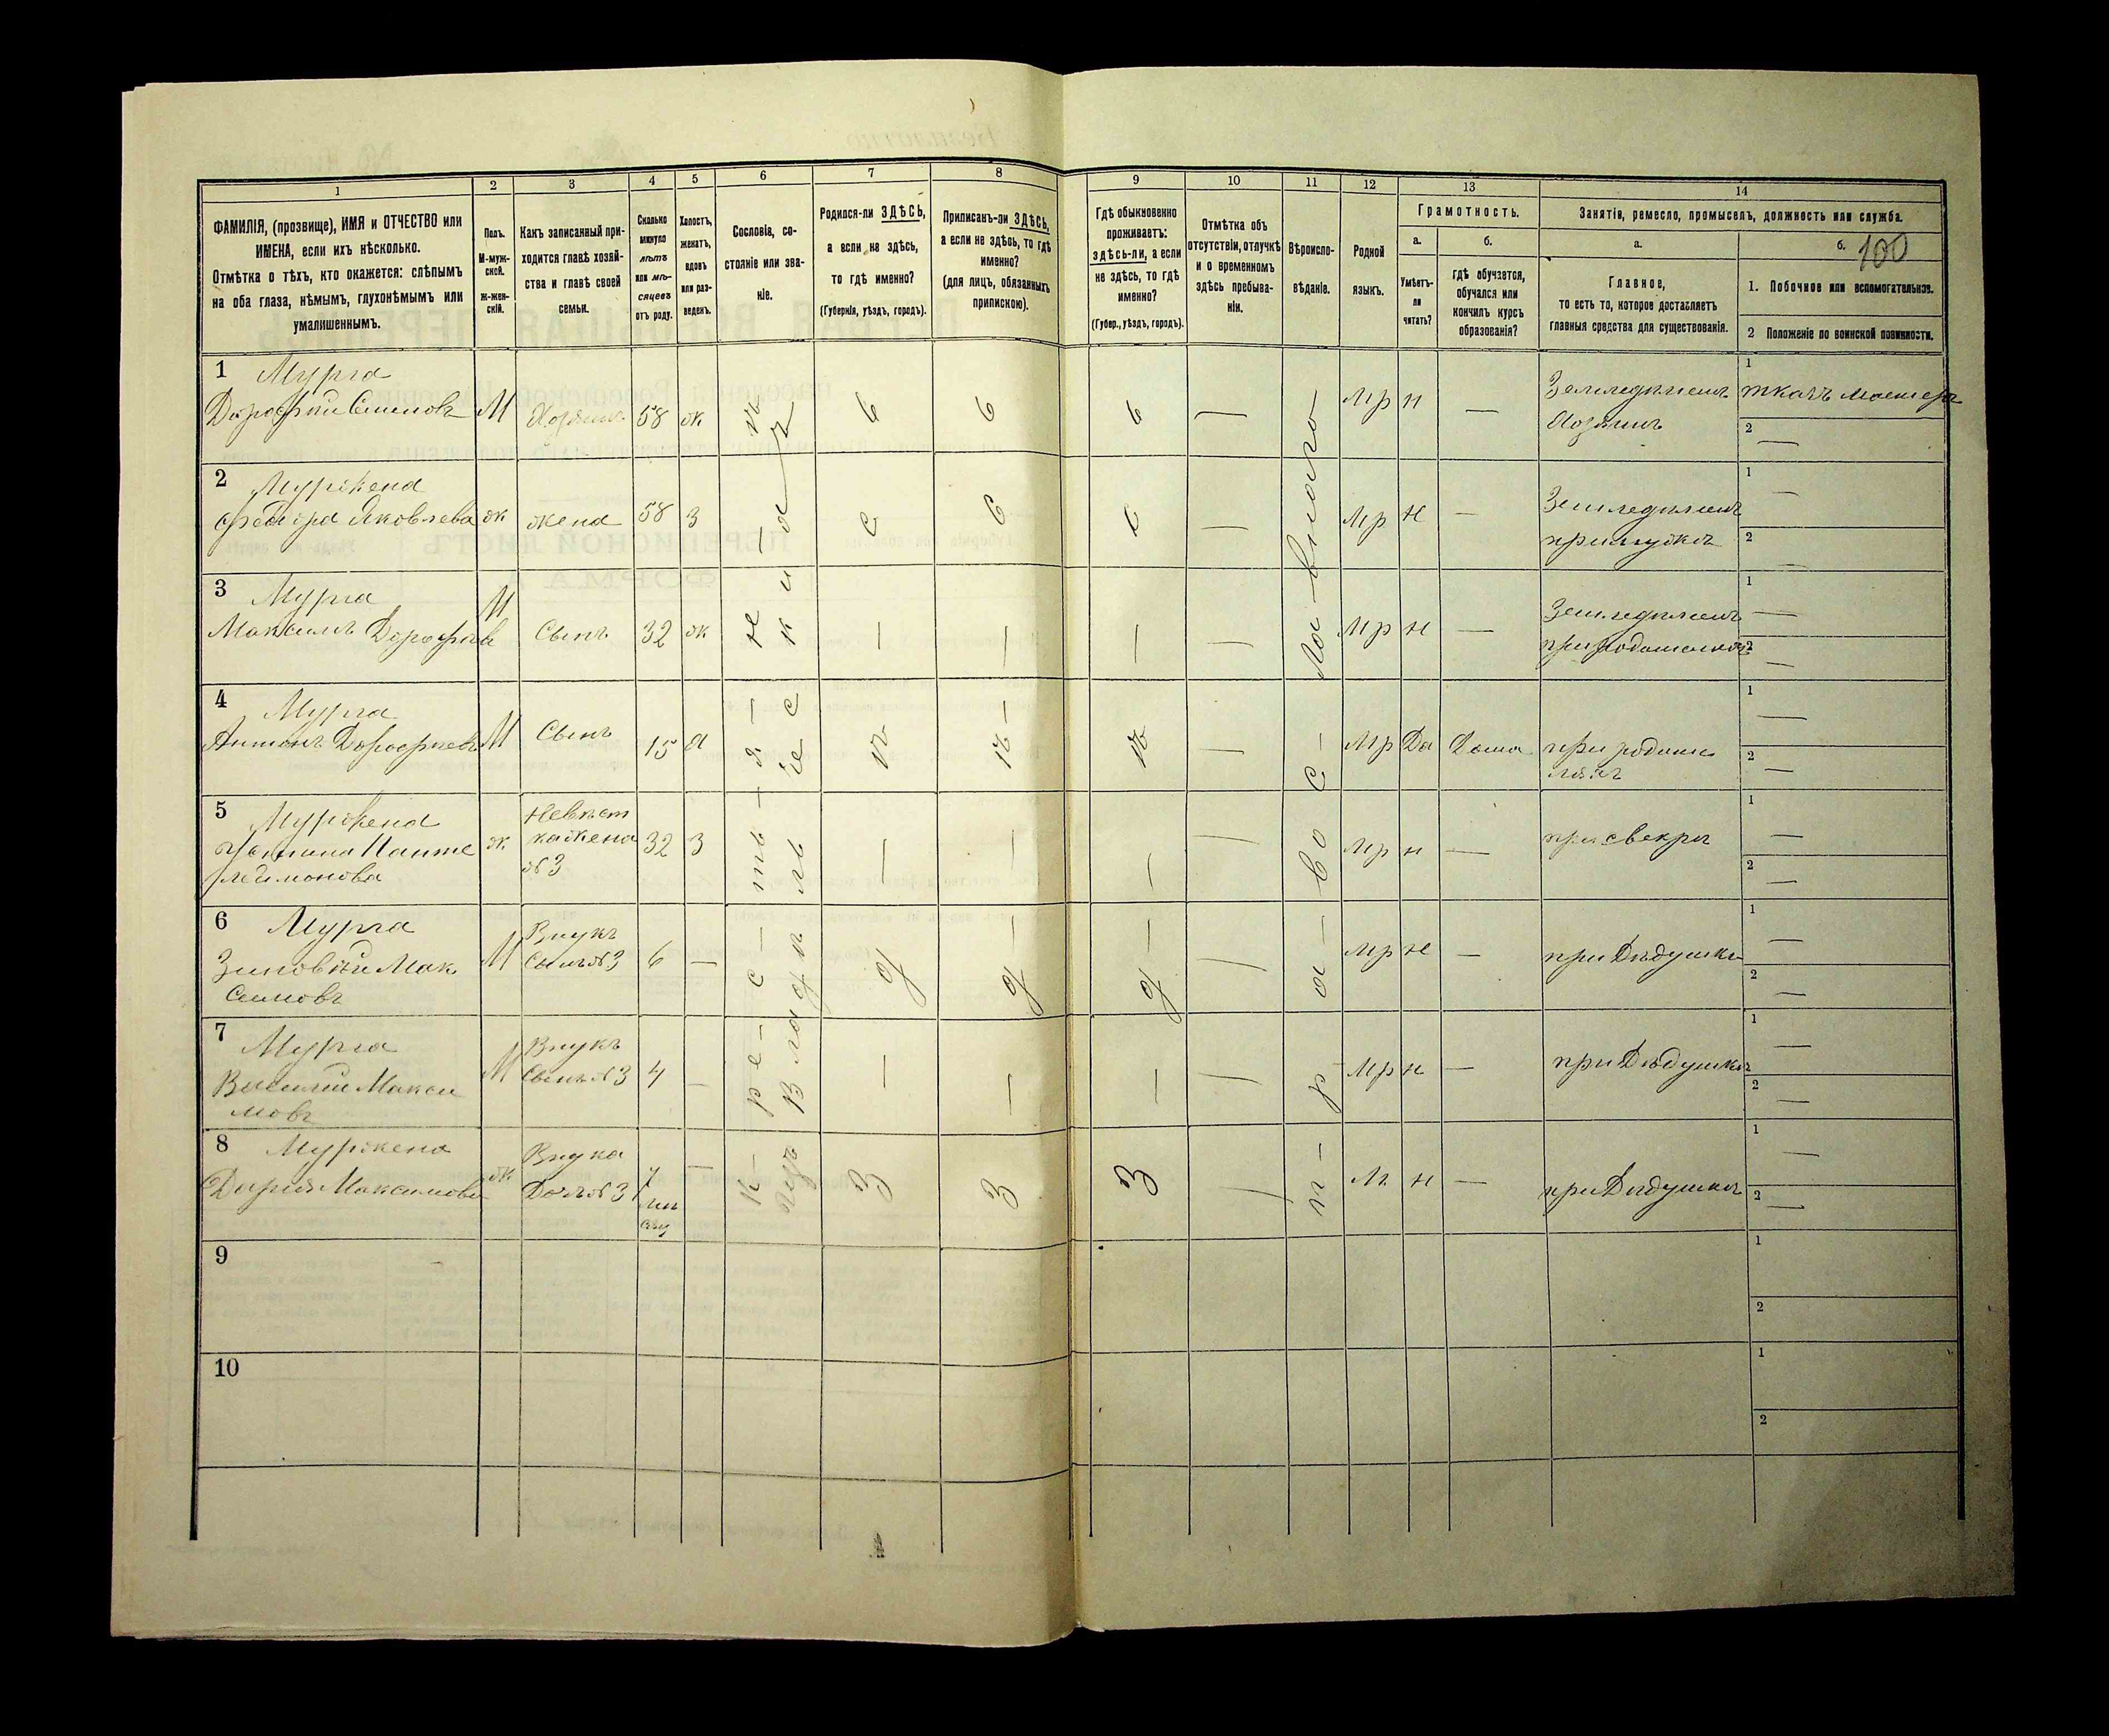 100
1 2 3 4 5 6 7 8 9 10 11 12 13 14
ФАМИЛІЯ, (прозвище), ИМЯ и ОТЧЕСТВО или
ИМЕНА, если ихъ нѣсколько.
Отмѣтка о тѣхъ, кто окажется: слѣпымъ
на оба глаза, нѣмымъ, глухонѣмымъ или
умалишеннымъ.
Полъ.
М-муж-
ской.
Ж-жен-
скій.
Какъ записанный при-
ходится главѣ хозяй-
ства и главѣ своей
семьи.
Сколько
минуло
лѣтъ
или мѣ-
сяцевъ
отъ роду.
Холостъ,
женатъ,
вдовъ
или раз-
веденъ.
Сословіе, со-
стояніе или зва-
ніе.
Родился-ли ЗДѢСЬ,
а если не здѣсь,
то гдѣ именно?
(Губернія, уѣздъ, городъ).
Приписанъ-ли ЗДѢСЬ,
а если не здѣсь, то гдѣ
именно?
(для лицъ, обязанныхъ
припискою).
Гдѣ обыкновенно
проживаетъ:
здѣсь-ли, а если
не здѣсь, то гдѣ
именно?
(Губер., уѣздъ, городъ).
Отмѣтка объ
отсутствіи, отлучкѣ
и о временномъ
здѣсь пребыва-
ніи.
Вѣроиспо-
вѣданіе.
Родной
языкъ.
Грамотность.
а.
Умѣетъ-
ли
читать?
б.
гдѣ обучается,
обучался или
кончилъ курсъ
образованія?
Занятіе, ремесло, промыселъ, должность или служба.
а.
Главное,
то есть то, которое доставляетъ
главныя средства для существованія.
б.
1. Побочное или вспомогательное.
2 Положеніе по воинской повинности.
1 Мурга
Дорофѣй Семеновъ М Хозяинъ 58 ж — Мр н — Земледѣлецъ ткачъ мастеръ
Хозяинъ
2 Муржена
Федора Яковлева ж жена 58 з — Мр н — Земледѣлецъ
при мужѣ
3 Мурга
Максимъ Дорофѣев М Сынъ 32 ж — Мр н — Земледѣлецъ
при родителяхъ
4 Мурга
Антонъ Дорофѣевъ М Сынъ 15 х — Мр Да Дома при родите
ляхъ
5 Муржена Невѣст
Пантe ж ка жена 32 з — Мр н — при свекрѣ
леимонова №3
6 Мурга Внукъ
Зиновій Мак М Сынъ №3 6 — Мр н — при Дѣдушкѣ
симовъ
7 Мурга Внукъ
Василій Макси М Сынъ №3 4 — Мр н — при Дѣдушкѣ
мовъ
8 Муржена Внука
Дарія Максимова ж Доч №3 — н — при Дѣдушкѣ
крестьянинъ
Владѣльческихъ
здѣсь
здѣсь
здѣсь
православнаго
9
10